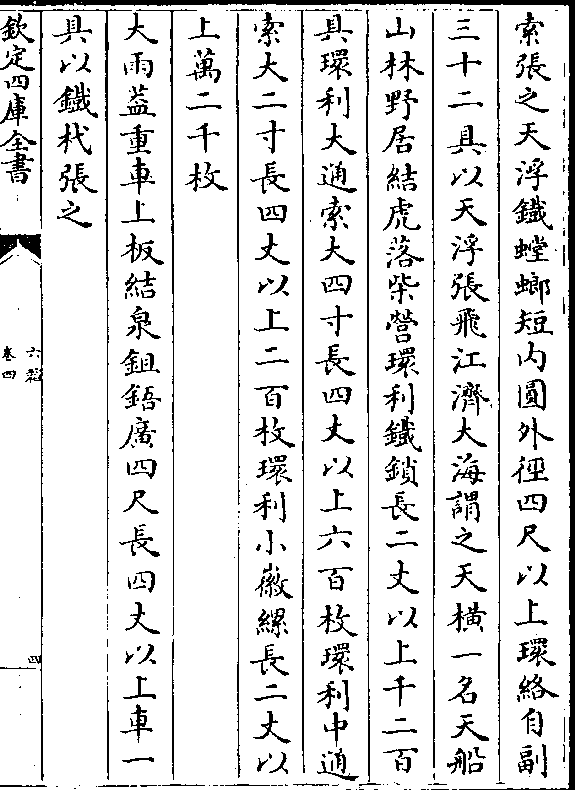 索張之天浮鐵螳螂短内圓外徑四尺以上環絡自副
三十二具以天浮張飛江濟大海謂之天橫一名天船
山林野居結虎落柴營環利鐵鎖長二丈以上千二百
具環利大通索大四寸長四丈以上六百枚環利中通
索大二寸長四丈以上二百枚環利小徽縲長二丈以
上萬二千枚
大雨葢重車上板結泉鉏鋙廣四尺長四丈以上車一
具以鐵杙張之
欽定四庫全書
六韜
卷四
四